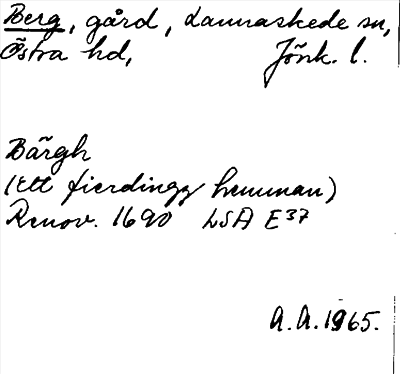 Berg, gård, Lannaskede sn,
Östra hd, Jönk. l.
Bärgh
(Ett fierdingz hemman)
Renov. 1690 LSA E37
A.A. 1965.